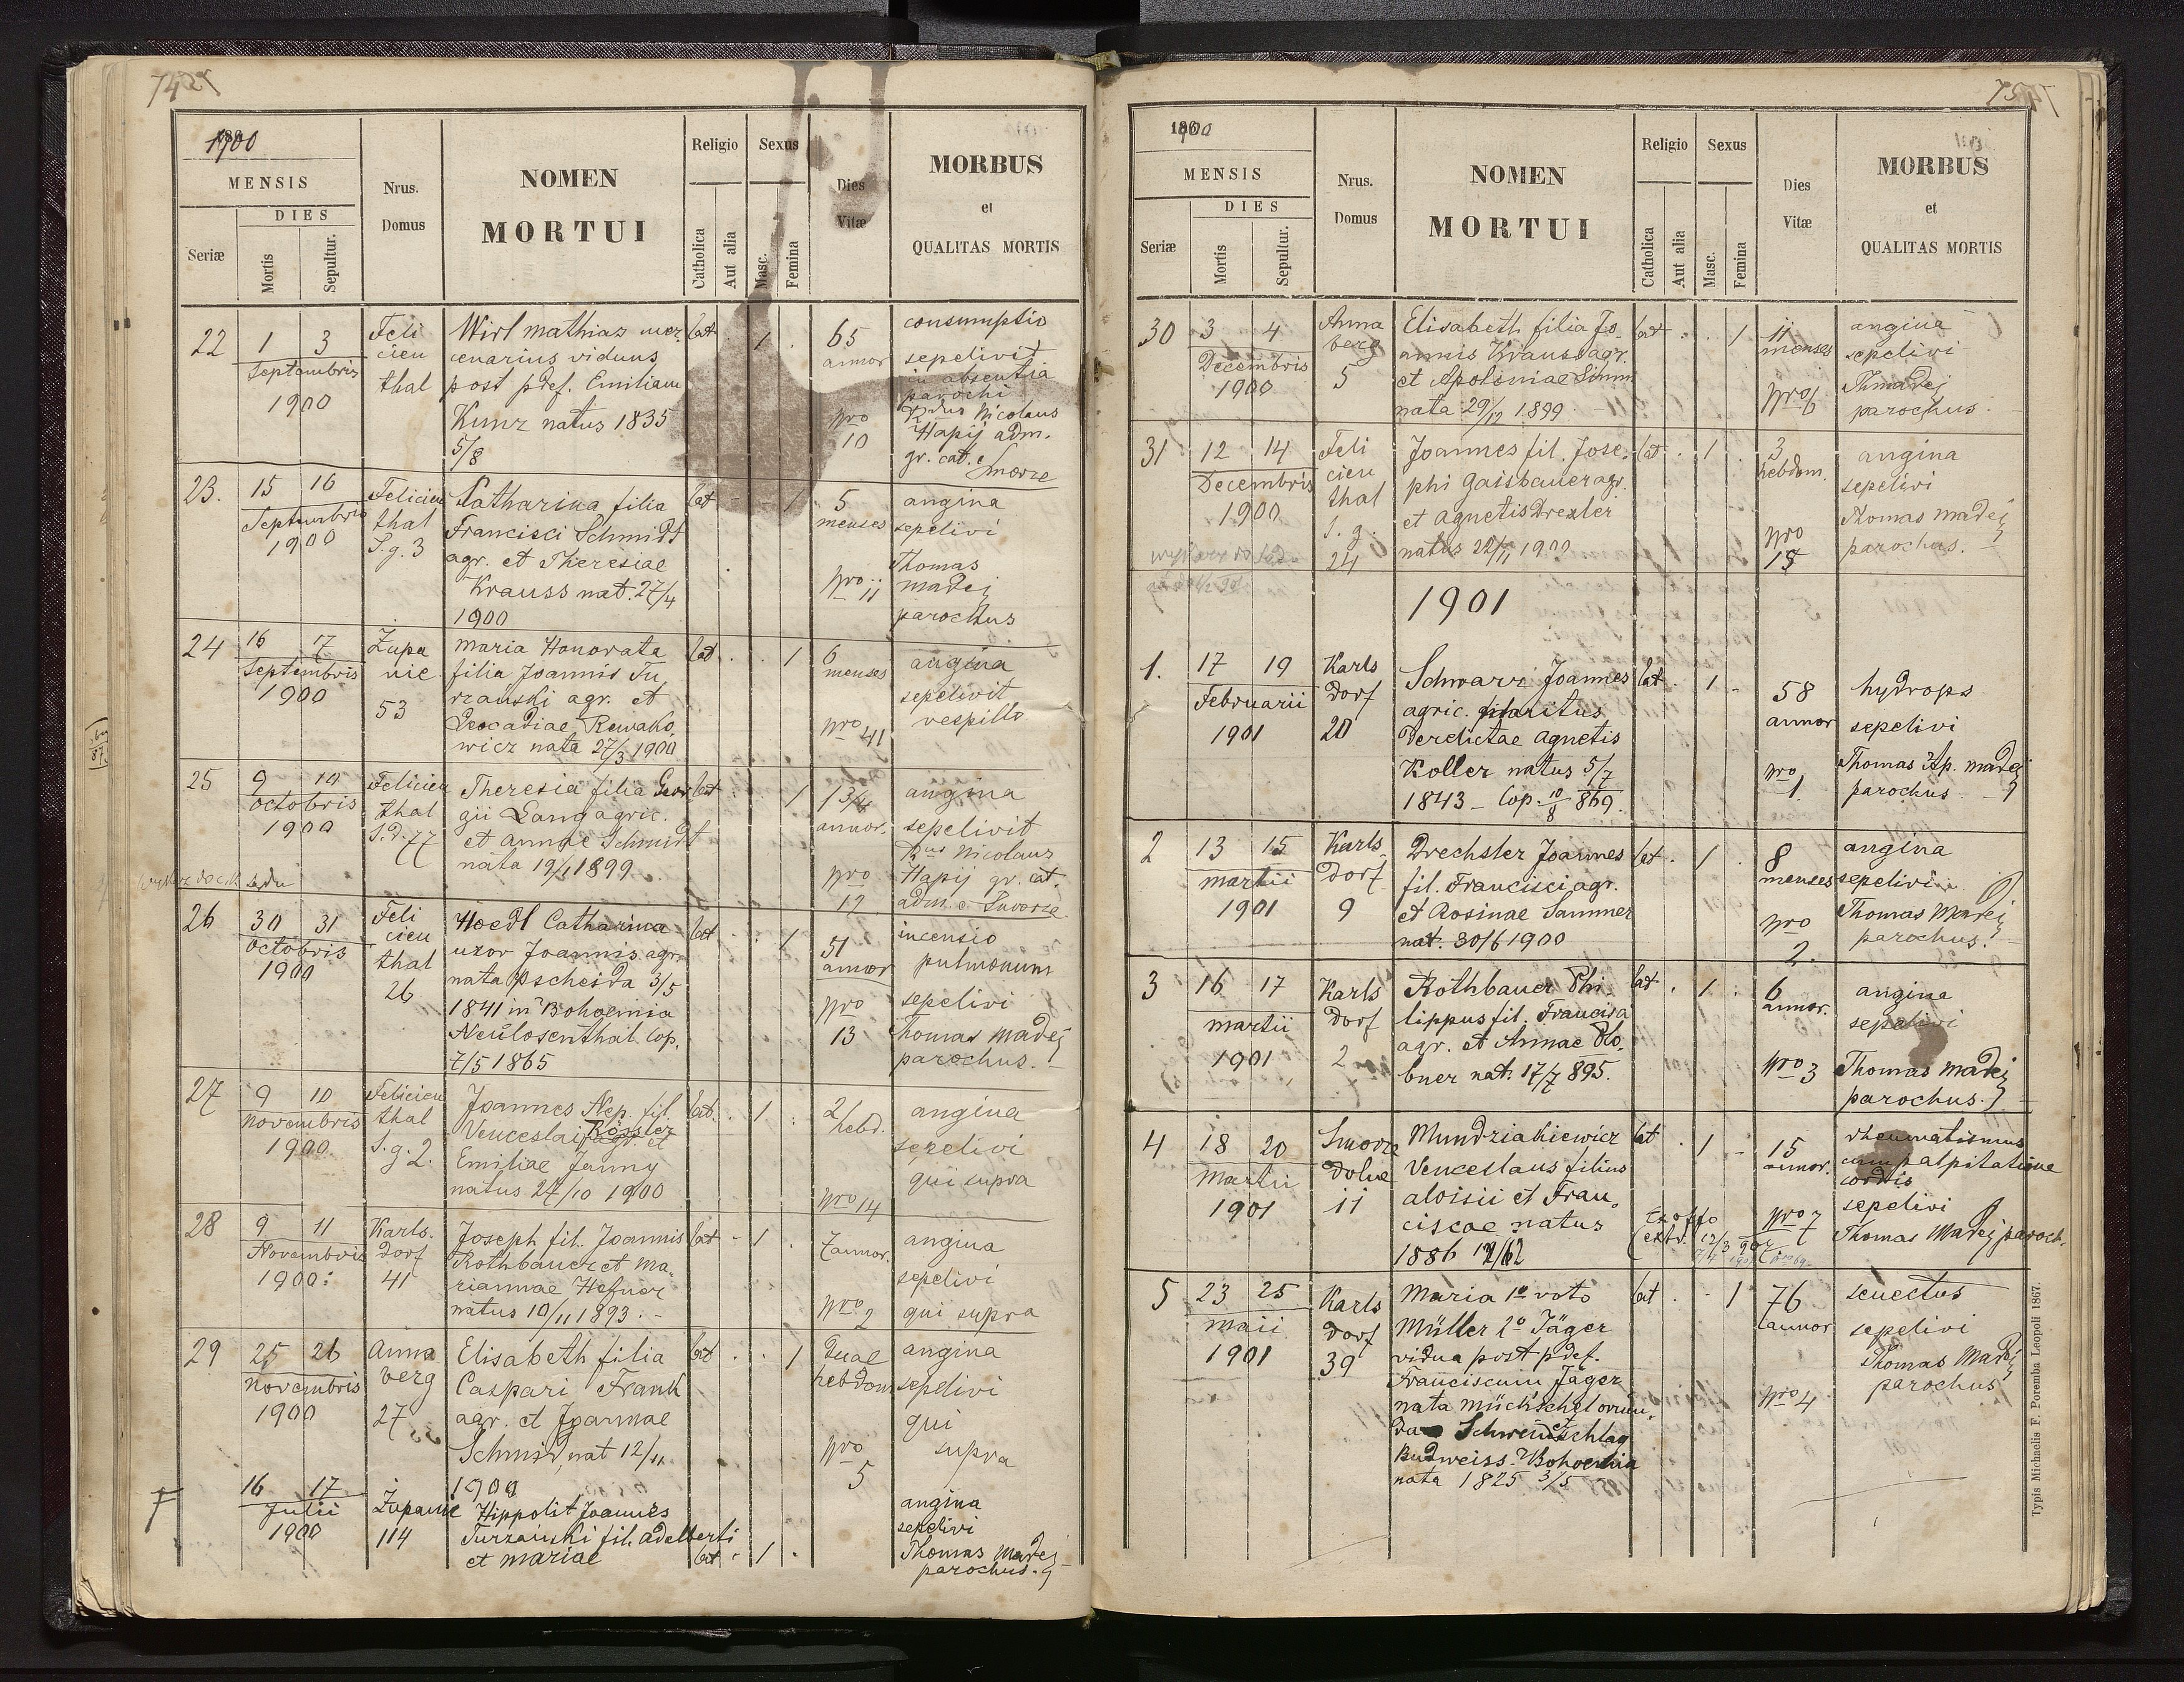 742
1900
MENSIS
DIES
Seriæ
Mortis
Sepultur.
Nrus.
Domus
NOMEN
MORTUI
Religio
Catholica
Aut alia
Sexus
Masc.
Femina
Dies
Vitæ
MORBUS
et
QUALITAS MORTIS
22
1 3
Septembris
1900
Feli
cien
thal
Wirl Mathias mer
cenarius viduus
post pdef. Emiliam
Kunz natus 1835
5/8
Cat
1
65
annor
pro
10
consumptio
sepelivit
in absentia
parochi
Rdus Nicolaus
Hapij adm.
gr. cat. Smorze
23.
15 16
Septembris
1900
Felicien
thal
S.g. 3
Catharina filia
Francisci Schmidt
agr. et Theresiae
Krauss nat. 27/4
1900
Cat
1
5
menses
pro 11
angina
sepelivi
Thomas
Madej
parochus
24
16 17
Septembris
1900
Zupa
nie
53
Maria Honorata
filia Joannis Tu
rzanski agr. et
Leocadiae Rewako
wicz nata 27/3 1900
Cat
1
6
menses
pro 41
angina
sepelivit
vespillo
25
9 10
Octobris
1900
Felicien
thal
S.d. 77
Theresia filia Geor
gii Lang agric.
et Annae Schmidt
nata 19/1 1899
Cat
1
1 3/4
annor.
pro
12
angina
sepelivit
Rdus Nicolaus
Hapij gr. cat.
adm.
26
30 31
Octobris
1900
Feli
cien
thal
26
Hoedl Catharina
uxor Joannis agr.
nata Pscheida 3/5
1841 in Bohoemia
Neulosenthal. Cop.
7/5 1865
Cat
1
51
annor
pro
13
incensio
pulmonum
sepelivi
Thomas Madej
parochus.
27
9 10
Novembris
1900.
Felicien
thal
S.g. 2.
Joannes Nep. fil.
Venceslai Rössler
agr. et
Emiliae Janny
natus 27/10 1900
Cat.
1
2/
hebd.
pro 14
angina
sepelivi
qui supra
28
9 11
Novembris
1900.
Karls
dorf
41
Joseph fil. Joannis
Rothbauer et Ma
riannae Hefner
natus 10/11 1893.
Cat
1
7 annor.
pro 2
angina
sepelivi
qui supra
29
25 26
Novembris
1900
Anna
berg
27
Elisabeth filia
Caspari Frank
agr. et Joannae
Schmid, nat 12/11
1900
Cat
1
duae
hebdom
pro
5
angina
sepelivi
qui
supra
16 17
Julii
1900
Zupanie
114
Hippolit Joannes
Turzanski fil. Adelberti
et Mariae
Cat
1
angina
sepelivi
Thomas Madej
parochus.
1900
MENSIS
DIES
Seriæ
Mortis
Sepultur.
Nrus.
Domus
NOMEN
MORTUI
Religio
Catholica
Aut alia
Sexus
Masc.
Femina
Dies
Vitæ
MORBUS
et
QUALITAS MORTIS
30
3 4
Decembris
1900
Anna
berg
5
Elisabeth filia Jo
annis Krauss agr.
et Apoloniae Simm
nata 29/12 1899
Cat
1
11
menses
pro 6
angina
sepelivi
Th Madej
parochus.
31
12 14
Decembris
1900
Feli
cien
thal
S.g.
24
Joannes fil. Jose
phi Gaisbauer agr.
et Agnetis Drexler
natus 22/11 1900
Cat
1
3
hebdom.
pro
15
angina
sepelivi
Thomas Madej
parochus.
1901
1.
17 19
Februarii
1901
Karls
dorf
20
Schwarz Joannes
agric. maritus
derelictae Agnetis
Koller natus 5/7
1843 - Cop. 10/8 869.
Cat
1
58
annor
pro
1.
hydrops
sepelivi
Thomas Ap. Madej
parochus.
2
13 15
Martii
1901
Karls
dorf
9
Drechsler Joannes
fil. Francisci agr.
et Rosinae Sammer
nat. 30/6 1900
Cat
1
8
menses
pro
2.
angina
sepelivi
Thomas Madej
parochus.
3
16 17
Martii
1901
Karls
dorf
2
Rothbauer Phi
lippus fil. Francisci
agr. et Annae Plo
bner nat. 17/7 895.
Cat
1
6
annor.
pro 3
angina
sepelivi
Thomas Madej
parochus.
4
18 20
Martii
1901
Smorze
dolne
11
Mundziakiewicz
Venceslaus filius
Aloisii et Fran
ciscae natus
1886
Cat
1
15
annor.
Ex offo
extr. 12/3 907
pro 7
rheumatismus
cum palpitatione
cordis
sepelivi
Thomas Madej paroch.
5
23 25
Maii
1901
Karls
dorf
39
Maria 1o voto
Müller 2o Jäger
vidua post pdef.
Franciscum Jäger
nata Mückschel oriun
da Schweinetschlag
Budweiss Bohoemia
nata 1825 3/5
Cat
1
76
annor
pro 4
senectus
sepelivi
Thomas Madej
parochus
Typis Michaelis F. Poremba Leopoli 1867.